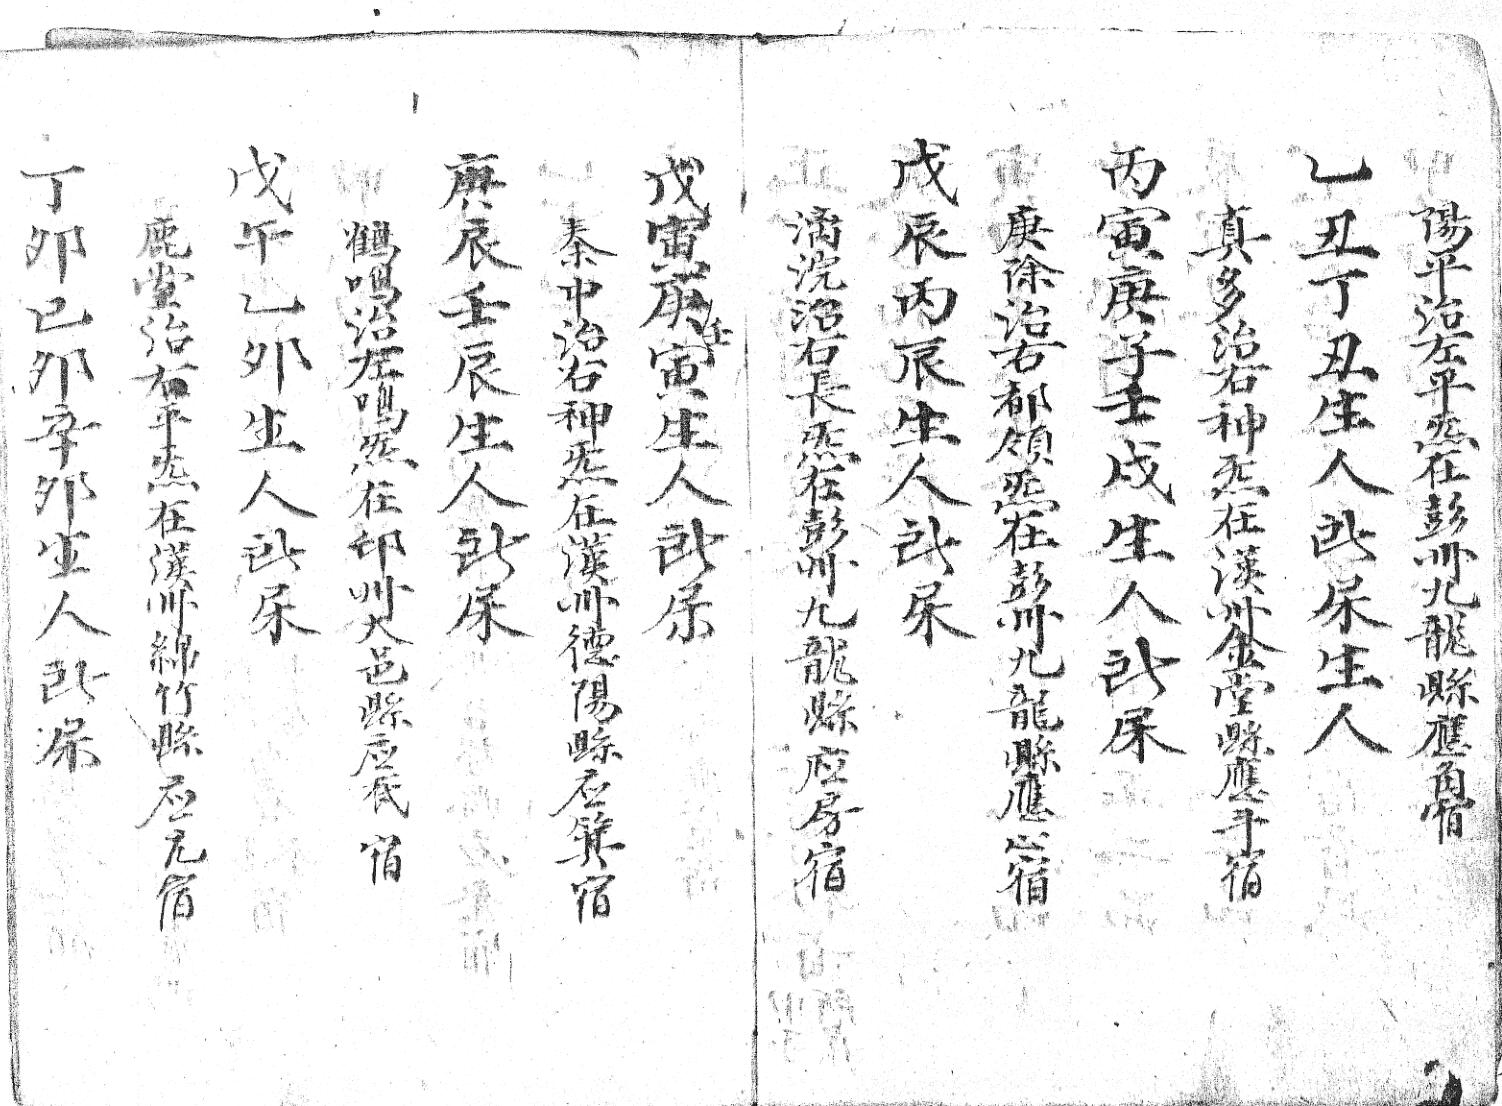 陽平治左平炁在彭州九龍縣應角宿
乙丑丁丑生人所屎生人
真多治右神炁在漢州金堂縣應斗宿
丙寅庚子壬戌生人所屎
庚除治右都領炁在彭州九龍縣應心宿
戊辰丙辰生人所屎
漓沅治右長炁在彭州九龍縣应房宿
戊寅庚壬寅生人所屎
秦中治右神炁在漢州德陽縣应箕宿
庚辰壬辰生人所屎
鶴鳴治左鳴炁在邛州大邑縣应氐宿
戊午乙卯生人所屎
鹿堂治右平炁在漢州綿竹縣应亢宿
丁卯己卯辛卯生人所